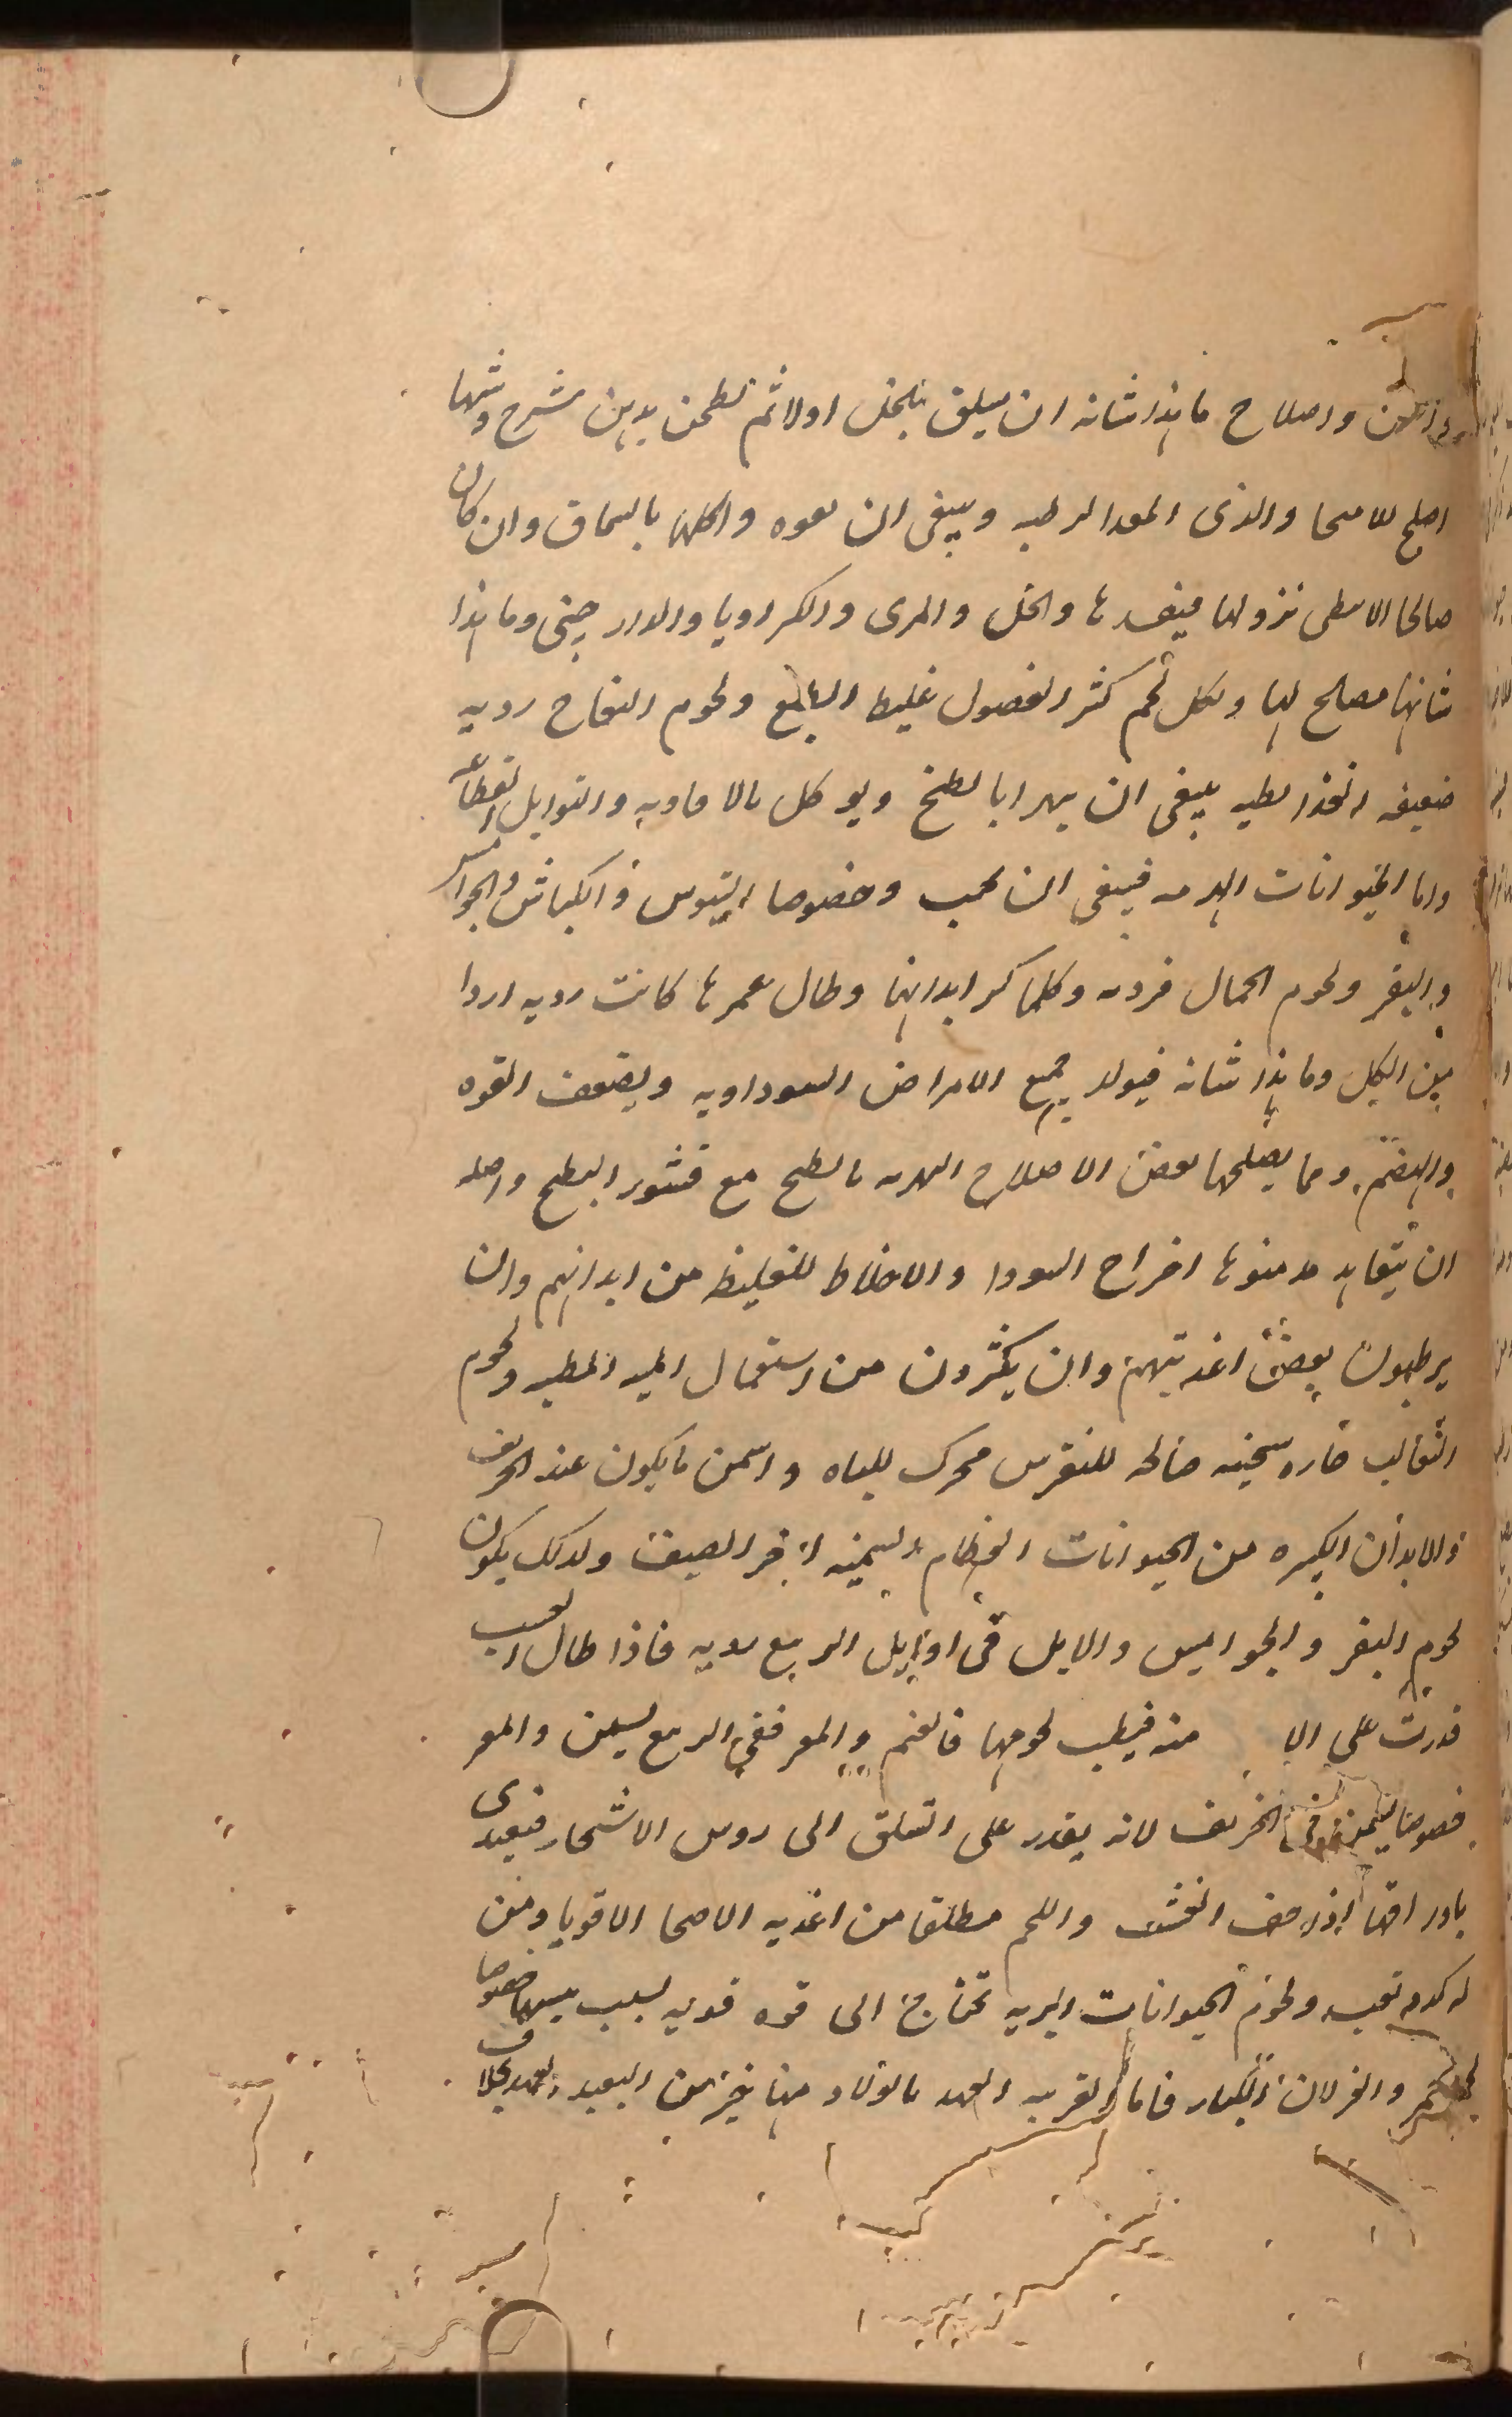 واصلاح ما هذا شانه ان يسلق بالخل اولا ثم يطحن بدهن شيرج وشهها
اصلح للاصحا والذى المعدا لرطبه وينبغى ان واكلها بالسماق وان كان
صالحا الا نزولها والخل والمرى والكراويا والدار جينى وما هذا
شانها مصلح لها ولكل لحم كثر الفضول غليط الطبع ولحوم النعاج رديه
ضعيفه الغذا بطيه ينبغى ان يهرا بالطبخ ويوكل بالافاويه والتوابل القطاعه
واما الحيوانات الهرمه فينبغى ان تجب وخصوصا التيوس والكباش والجواميس
والبقر ولحوم الجمال وكلما كبر ابدانها وطال عمرها كانت رديه اردا
من الكل وما هذا شانه فيولد جميع الامراض السوداويه ويضعف القوه
والهضم ومما يصلحها بعض الاصلاح التهريه بالطبخ مع قشور البطيخ واصله
ان يتعاهد مدمنوها اخراج السودا والاخلاط الغليظه من ابدانهم وان
يرطبون بعض اغذيتهم وان يكثرون من استعمال ولحوم
الثعالب حاره سخينه صالحه للنقرس محرك للباه واسمن ما يكون عند الخريف
والابدان الكبيره من الحيوانات العظام السمينه اخر الصيف ولذلك يكون
لحوم البقر والجواميس والايل فى اوايل الربيع رديه فاذا طال العشب
قدرت على الا منه فيطيب لحومها فالغنم والمعز ففى الربيع يسمن والمعز
خصوصا يسمن فى الخريف لانه يقدر على التعلق الى روس الاشجار فيغتدى
باوراقها اذا جف العشب واللحم مطلقا من اغذيه الاصحا الاقويا ومن
له كد وتعب ولحوم الحيوانات البريه تحتاج الى قوه قويه لسبب يبسها خصوصا
والغزلان الكبار فاما القريبه العهد بالولاد منها خير من البعيد العهد بخلاف